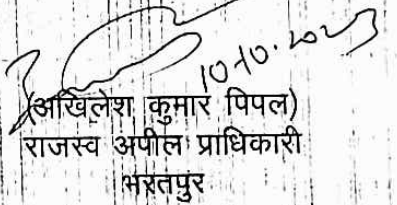 10.10.2023
(अखिलेश कुमार पिपल)
राजस्व अपील प्राधिकारी
भरतपुर